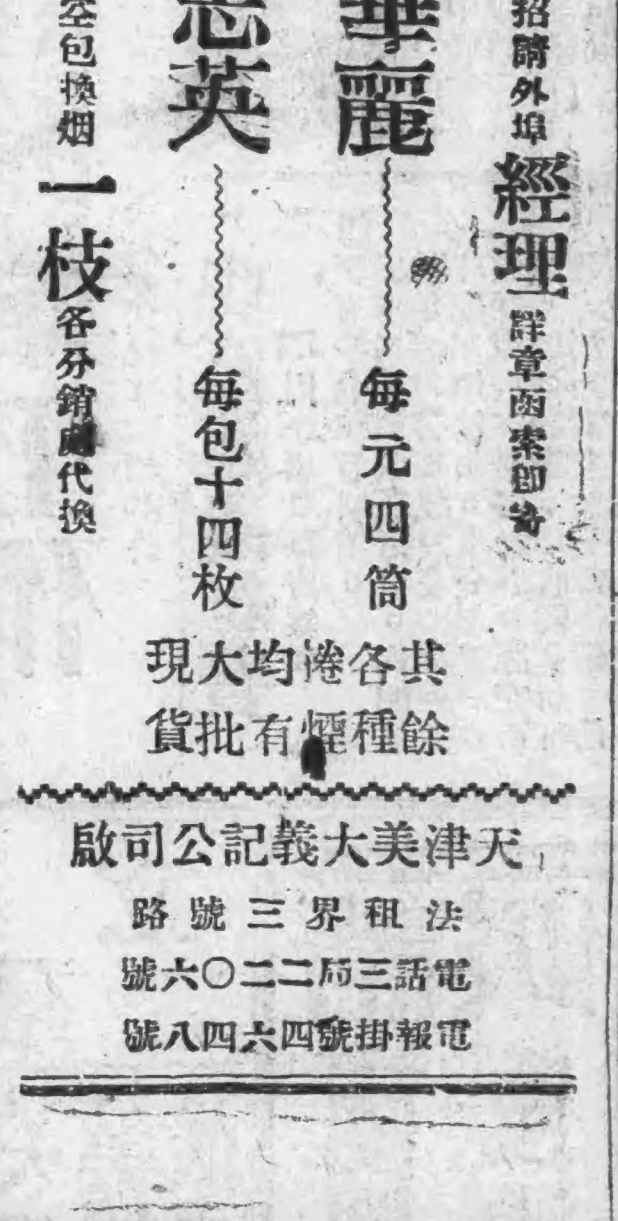 招請外埠經理詳章函索卽寄
華麗 每元四筒
志英 每包十四枚
空包換烟一枝各分銷處代換
其餘各種捲煙均有大批現貨
天津美大義記公司啟
法租界三號路
電話三局二二〇六號
電報掛號四六四八號